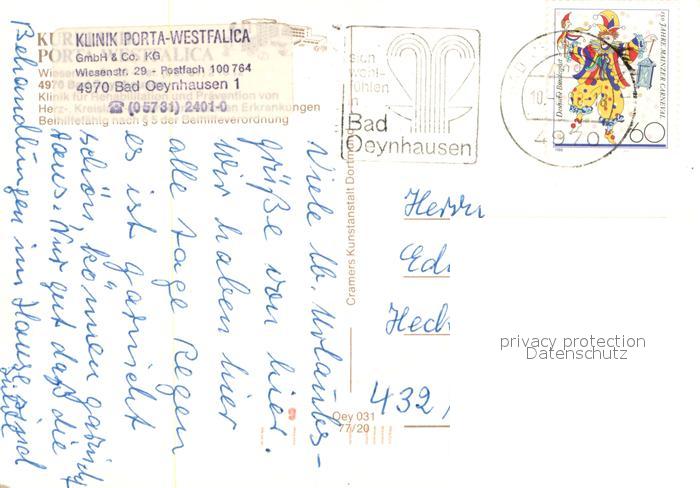 KLINIK PORTA-WESTFALICA
GmbH & Co. KG
Wiesenstr. 29 - Postfach 100764
4970 Bad Oeynhausen 1
☎ (05731) 2401-0
KUR
PORTA-WESTFALICA
Wiesen
4970 B
Klinik für Rehabilitation und Prävention von
Herz-, Kreis Erkrankungen
Beihilfefähig nach § 5 der Beihilfeverordnung
sich
wohl-
fühlen
in
Bad
Oeynhausen
10.
4970
150 JAHRE MAINZER CARNEVAL
Deutsche Bundespost
60
Viele lb. Urlaubs-
grüße von hier.
Wir haben hier
alle Tage Regen
es ist garnicht
schön können garnicht
raus. Nur gut daß die
Behandlungen im Hause sind
Cramers Kunstanstalt Dortm
Herrn
Edi
Heck
432
Oey 031
77/20
privacy protection
Datenschutz